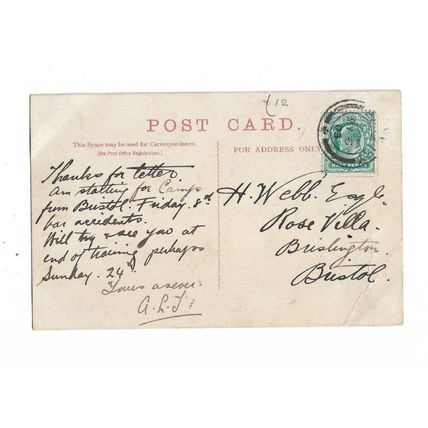 £12
POST CARD.
This Space may be used for Correspondence.
(See Post Office Regulations.)
FOR ADDRESS ONLY
Thanks for letter.
Am starting for Camp
from Bristol. Friday. 8th
bar accidents.
Will try & see you at
end of training perhaps
Sunday. 24th
Yours as ever
A.L.J.
H. Webb. Esq.
Rose Villa.
Brislington.
Bristol.